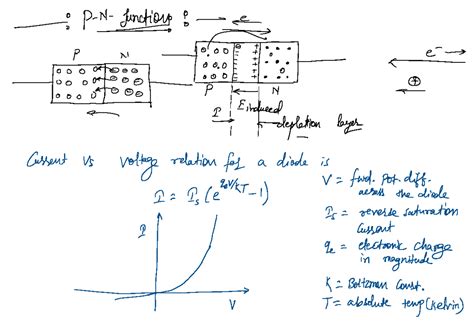 P-N- junction :
e
P N
P N
e⁻
⊕
E induced
I
depletion layer
Current vs voltage relation for a diode is
I = Is (e^qeV/KT - 1)
I
V
V = fwd. pot. diff. across the diode
Is = reverse saturation current
qe = electronic charge in magnitude
K = Boltzman Const.
T = absolute temp (kelvin)